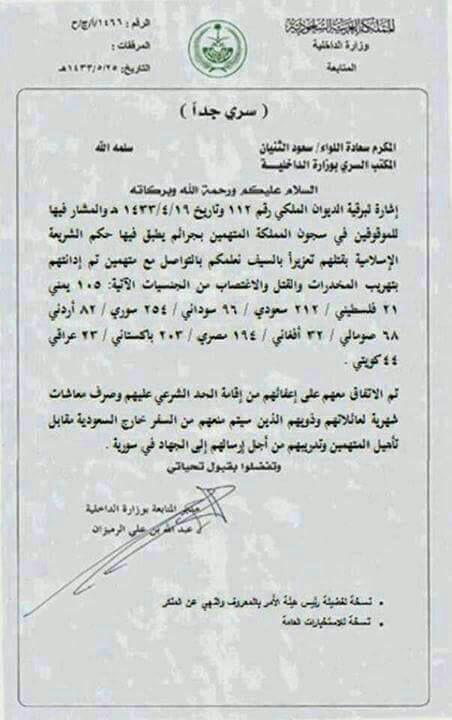 المملكة العربية السعودية
وزارة الداخلية
المتابعة
الرقم : ١٤٦٦/ا/ج/ح
المرفقات :
التاريخ: ١٤٣٣/٥/٢٥هـ
( سري جداً )
المكرم سعادة اللواء/ سعود الثنيان سلمه الله
المكتب السري بوزارة الداخلية
السلام عليكم ورحمة الله وبركاته
إشارة لبرقية الديوان الملكي رقم ١١٢ وتاريخ ١٤٣٣/٤/١٩ هـ والمشار فيها
للموقوفين في سجون المملكة المتهمين بجرائم يطبق فيها حكم الشريعة
الإسلامية بقتلهم تعزيراً بالسيف نعلمكم بالتواصل مع متهمين تم إدانتهم
بتهريب المخدرات والقتل والاغتصاب من الجنسيات الآتية: ١٠٥ يمني
٢١ فلسطيني / ٢١٢ سعودي / ٩٦ سوداني / ٢٥٤ سوري / ٨٢ أردني
٦٨ صومالي / ٣٢ أفغاني / ١٩٤ مصري / ٢٠٣ باكستاني / ٢٣ عراقي
٤٤ كويتي .
تم الاتفاق معهم على إعفائهم من إقامة الحد الشرعي عليهم وصرف معاشات
شهرية لعائلاتهم وذويهم الذين سيتم منعهم من السفر خارج السعودية مقابل
تأهيل المتهمين وتدريبهم من أجل إرسالهم إلى الجهاد في سورية .
وتفضلوا بقبول تحياتي
مدير المتابعة بوزارة الداخلية
عبد الله بن علي الرميزان
• نسخة لفضيلة رئيس هيئة الأمر بالمعروف والنهي عن المنكر
• نسخة للاستخبارات العامة